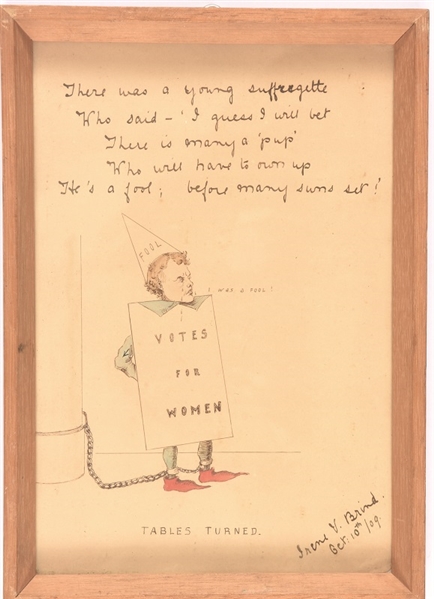 There was a young suffregette
Who said - 'I guess I will bet
There is many a 'pup'
Who will have to own up
He's a fool; before many suns set!
FOOL
I WAS A FOOL!
VOTES
FOR
WOMEN
TABLES TURNED.
Irene V. Brind.
Oct. 10th/09.